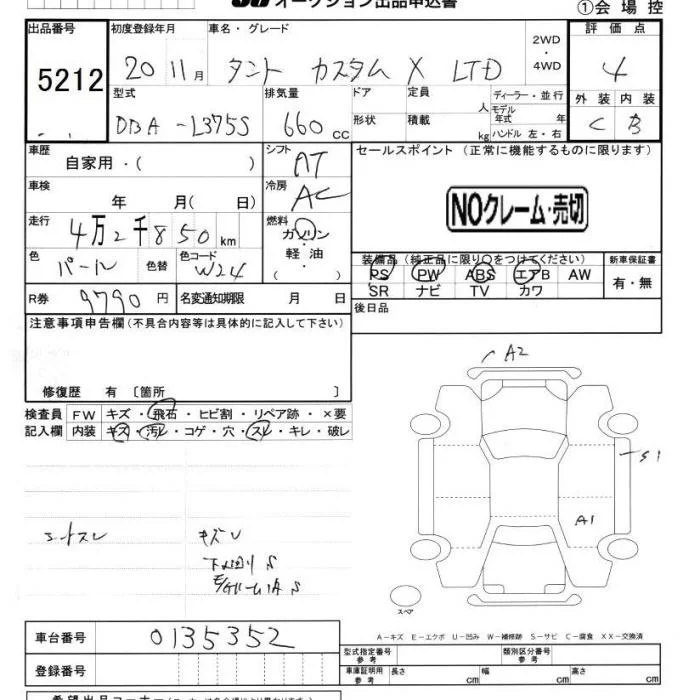 オークション出品申込書
①会場控
出品番号 初度登録年月 車名・グレード 2WD ・ 4WD 評価点
5212 20 11月 タント カスタム X LTD 4
型式 排気量 ドア 定員 人 ディーラー・並行 外装 内装
モデル年式 年
DBA-L375S 660 CC 形状 積載 kg ハンドル 左・右 C B
車歴 自家用・( ) シフト AT セールスポイント (正常に機能するものに限ります)
車検 年 月( 日) 冷房 AC
NOクレーム・売切
走行 4万2千850km 燃料 ガソリン
軽油
( )
色 パール 色替 色コード W24 装備品(純正品に限り○をつけてください) 新車保証書
PS PW ABS エアB AW 有・無
SR ナビ TV カワ
R券 9790円 名変通知期限 月 日 後日品
注意事項申告欄(不具合内容等は具体的に記入して下さい)
A2
修復歴 有 [箇所 ]
検査員 FW キズ・飛石・ヒビ割・リペア跡・×要
記入欄 内装 キズ・汚レ・コゲ・穴・スレ・キレ・破レ
S1
A1
シートスレ キズU
下廻りS
S
スペア
車台番号 0135352
A-キズ E-エクボ U-凹み W-補修跡 S-サビ C-腐食 XX-交換済
型式指定番号 参考 類別区分番号 参考
登録番号 車庫証明用 参考 長さ cm 幅 cm 高さ cm